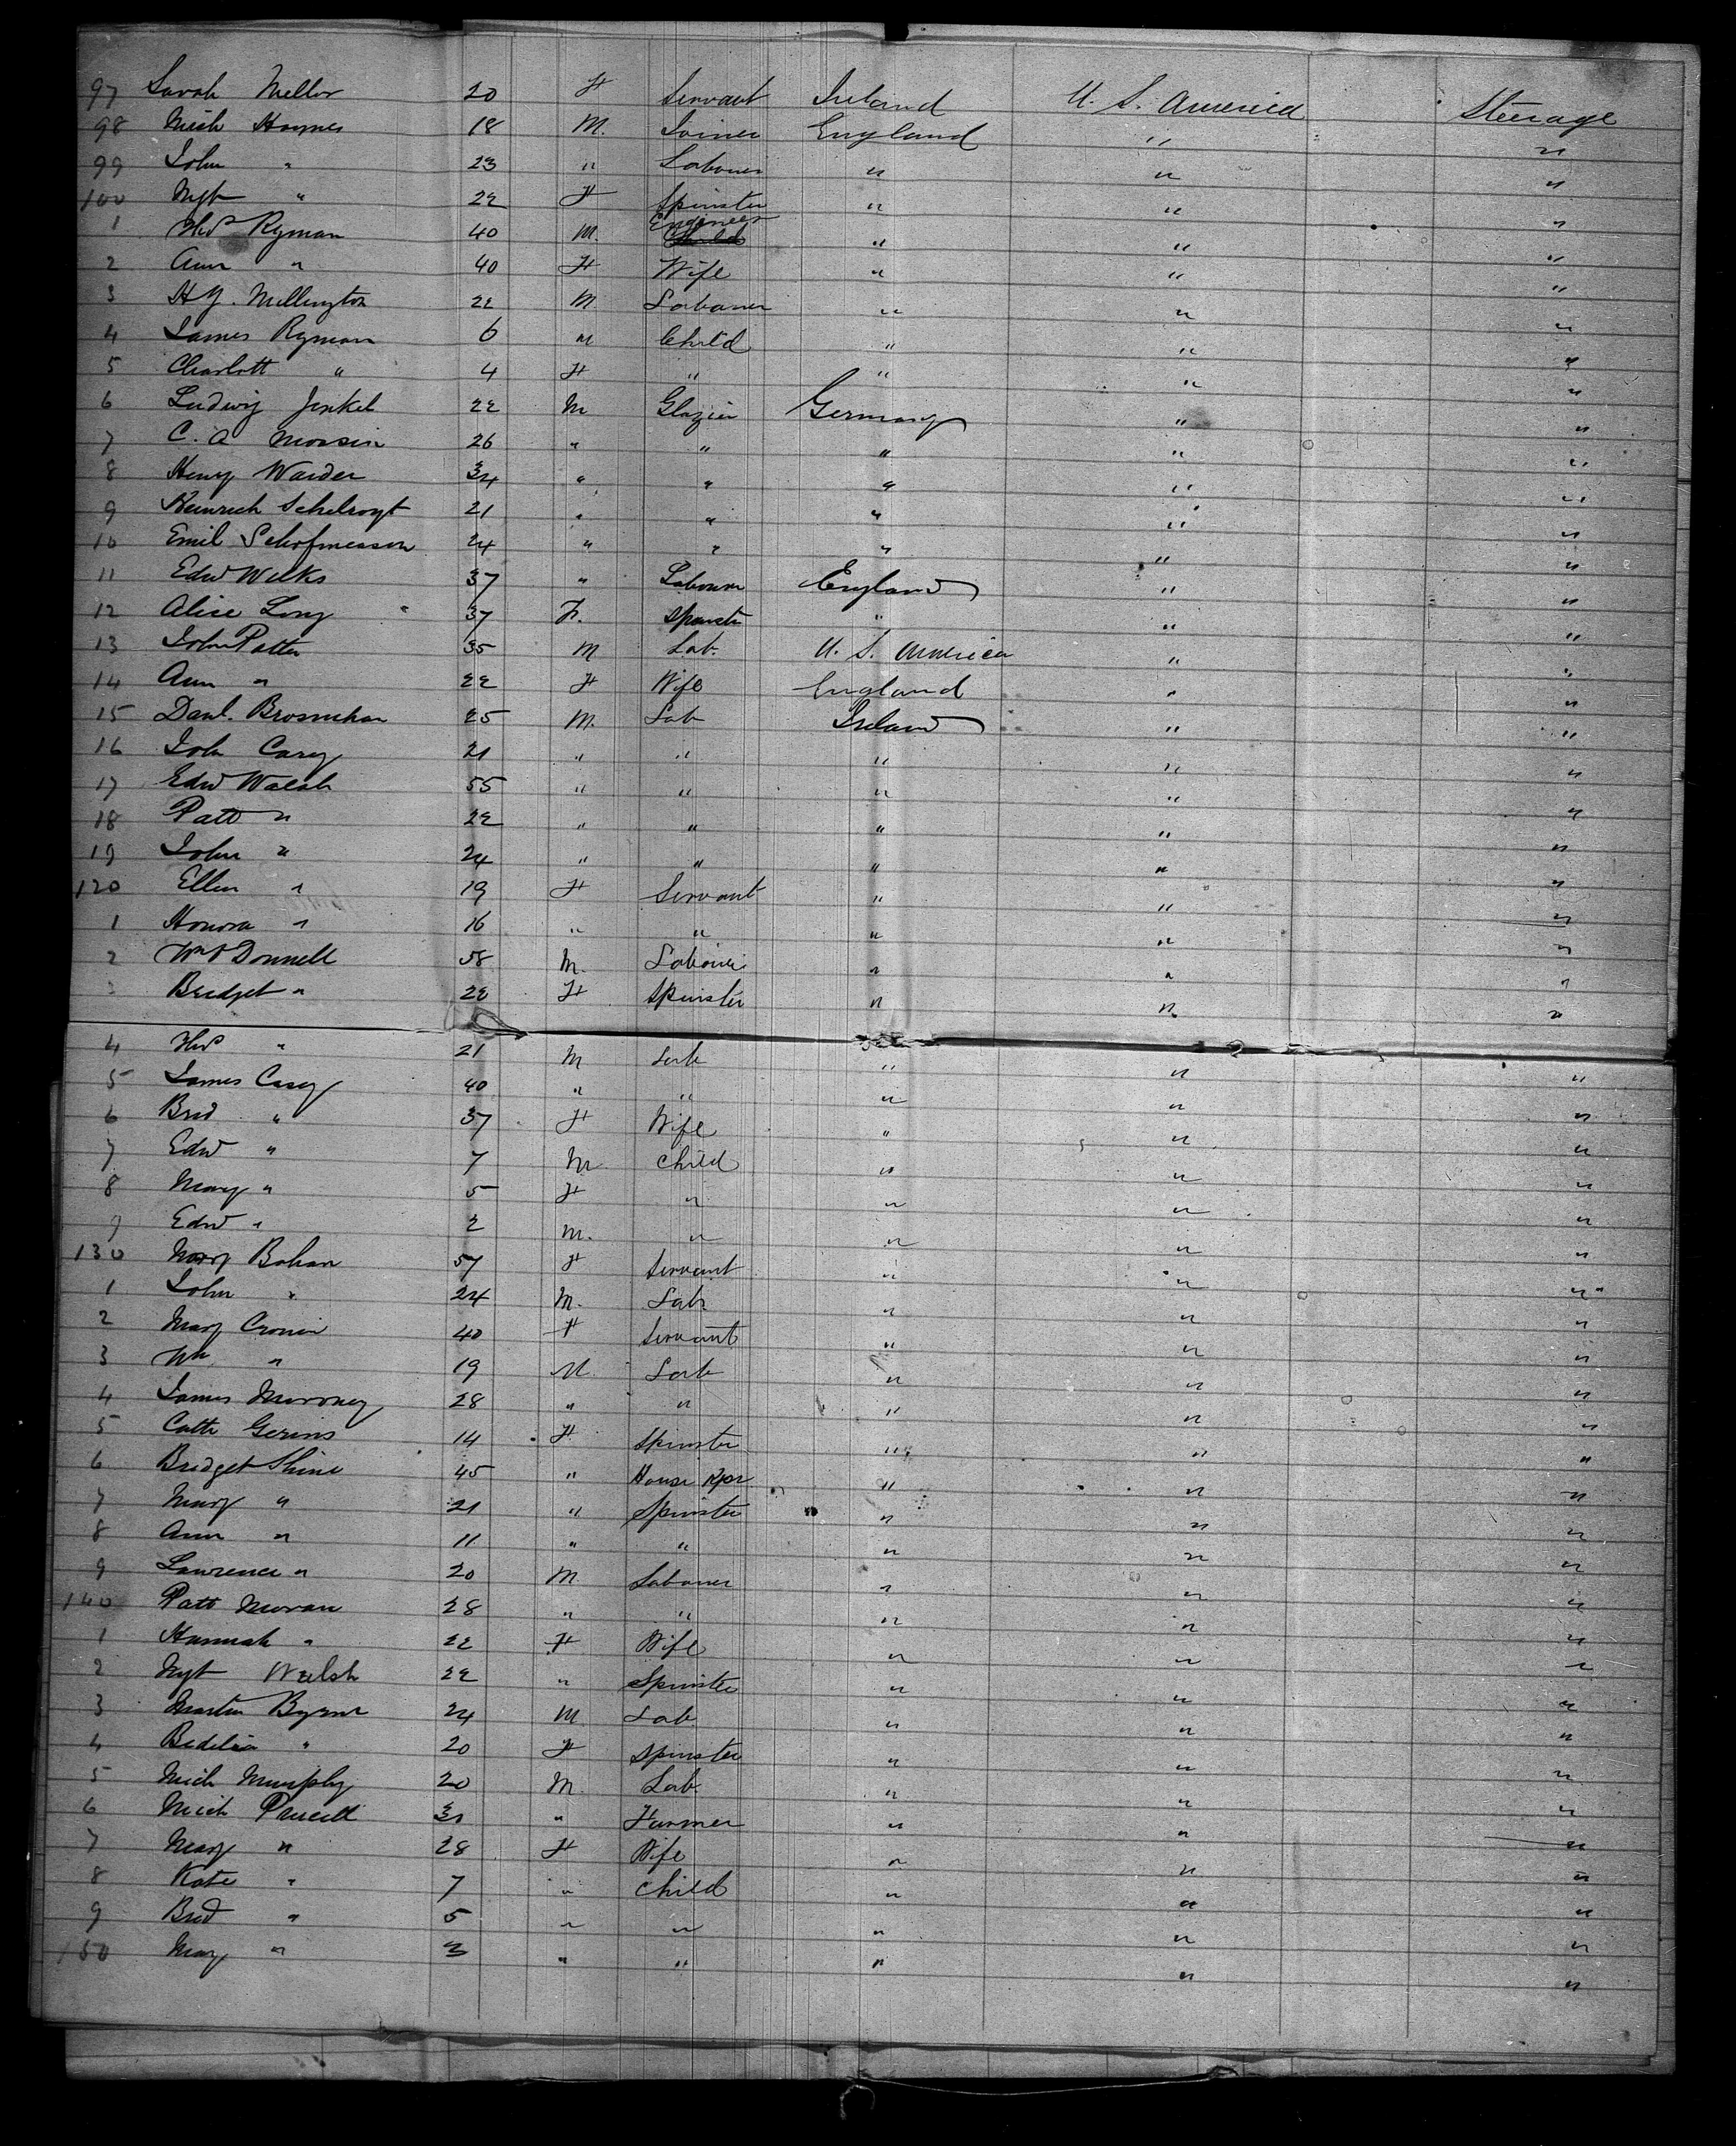 97 Sarah Mellor 20 F Servant Ireland U. S. America Steerage
98 Mich Haynes 18 M. Joiner England " "
99 John " 23 " Labourer " " "
100 Mgt " 22 F Spinster " " "
1 Thos Ryman 40 M. Engineer " " "
2 Ann " 40 F Wife " " "
3 H Y. Mellington 22 M Labourer " " "
4 James Ryman 6 M Child " " "
5 Charlott " 4 F " " " "
6 Ludwig Jenkel 22 M Glazier Germany " "
7 C. A 26 " " " " "
8 Henry Warder 34 " " " " "
9 Heinrich 21 " " " " "
10 Emil 24 " " " " "
11 Edwd Wilks 37 " Labourer England " "
12 Alice Long 37 F. Spinster " " "
13 John Patten 35 M Lab. U. S. America " "
14 Ann " 22 F Wife England " "
15 Danl. Brosnehan 25 M. Lab Ireland " "
16 Joh Carey 21 " " " " "
17 Edwd Walsh 55 " " " " "
18 Patt " 22 " " " " "
19 John " 24 " " " " "
120 Ellen " 19 F Servant " " "
1 Honora " 16 " " " " "
2 Wm O'Donnell 58 M. Labourer " " "
3 Bridget " 22 F Spinster " " "
4 Thos " 21 M Lab " " "
5 James Casey 40 " " " " "
6 Brid " 37 F Wife " " "
7 Edwd " 7 M Child " " "
8 Mary " 5 F " " " "
9 Edwd " 2 M. " " " "
130 Mary Bohan 57 F Servant " " "
1 John " 24 M. Lab. " " "
2 Mary Cronin 40 F Servant " " "
3 Wm " 19 M Lab " " "
4 James Moroney 28 " " " " "
5 Cath Gerins 14 F Spinster " " "
6 Bridget Shine 45 " House Kpr " " "
7 Mary " 21 " Spinster " " "
8 Ann " 11 " " " " "
9 Lawrence " 20 M Labourer " " "
140 Patt Moran 28 " " " " "
1 Hannah " 22 F Wife " " "
2 Mgt Welsh 22 " Spinster " " "
3 Martin Byrne 24 M Lab " " "
4 Bedelia " 20 F Spinster " " "
5 Mich Murphy 20 M Lab. " " "
6 Mich Purcell 30 " Farmer " " "
7 Mary " 28 F Wife " " "
8 Kate " 7 " Child " " "
9 Brid " 5 " " " " "
150 Mary " 3 " " " " "